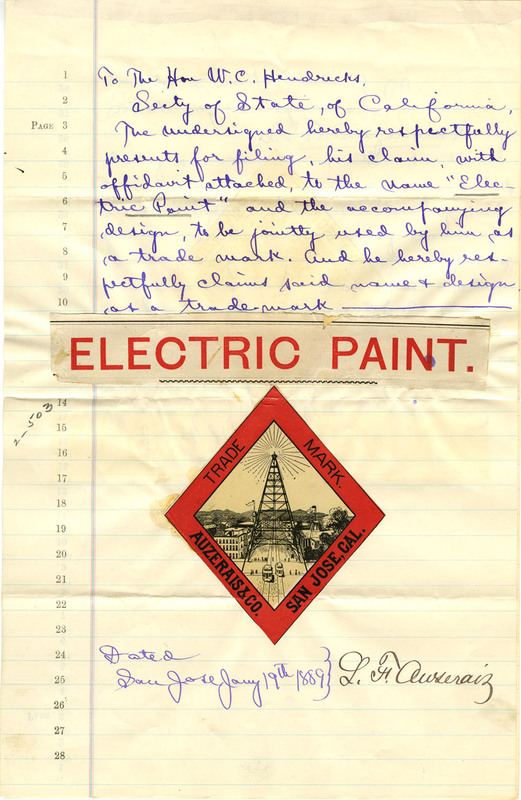 1 To The Hon W. C. Hendricks,
2 Secty of State, of California,
PAGE 3 The undersigned hereby respectfully
4 presents for filing, his claim, with
5 affidavit attached, to the name "Elec-
6 tric Paint" and the accompanying
7 design, to be jointly used by him as
8 a trade mark. And he hereby res-
9 pectfully claims said name & design
10 as a trade mark
ELECTRIC PAINT.
14
2-503
15
16
17
18
19
20
21
22
23
TRADE MARK.
AUZERAIS & CO. SAN JOSE, CAL.
24 Dated
25 San Jose Jany 19th 1889 L. F. Auzerais
26
27
28